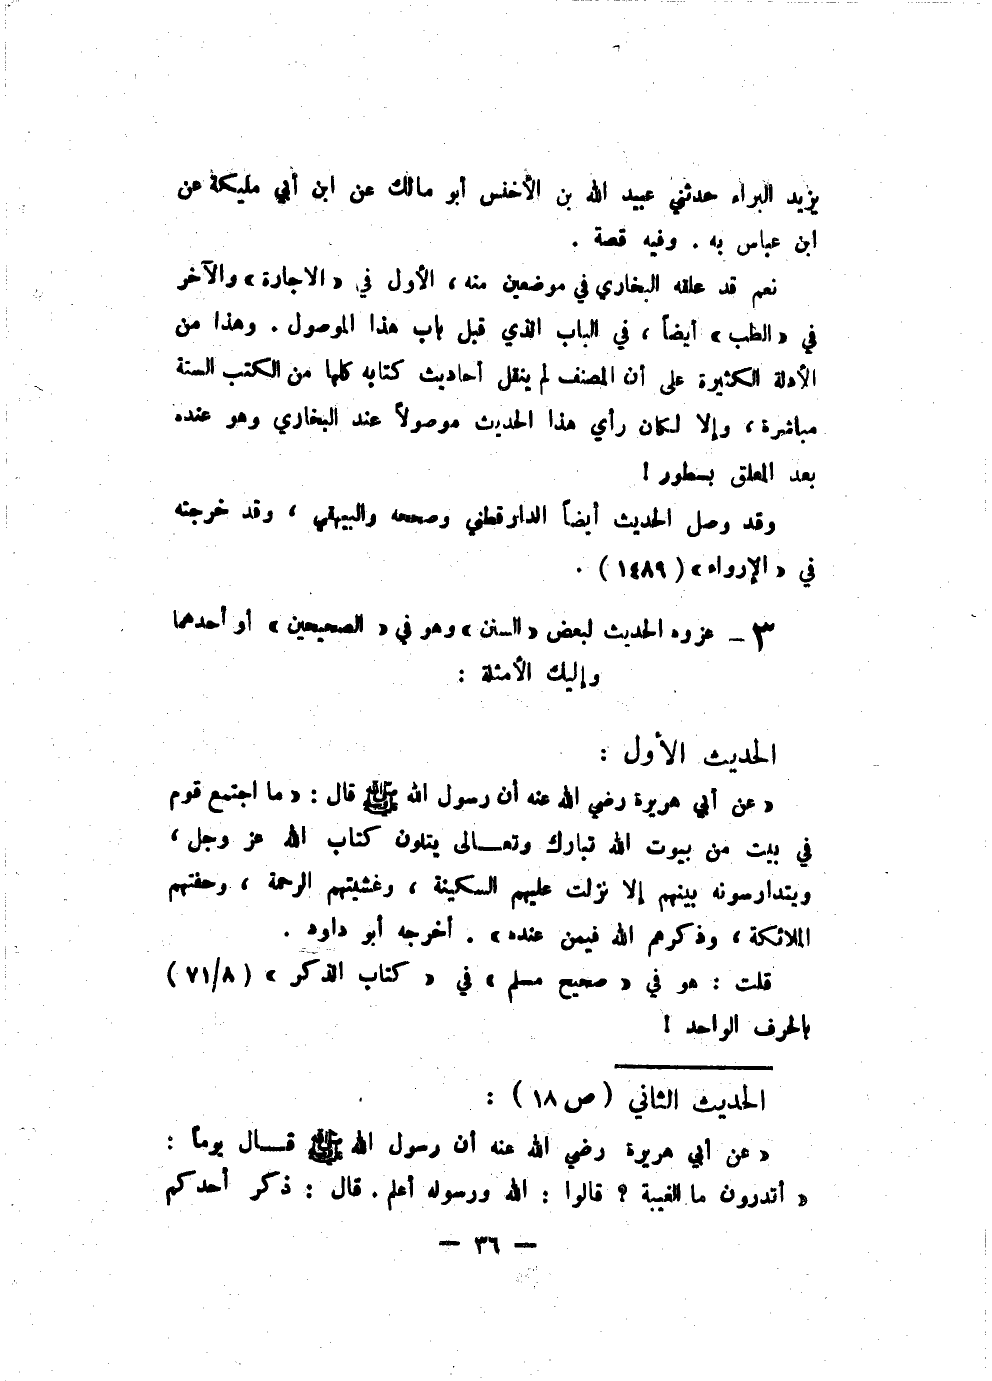 يزيد البراء حدثني عبيد الله بن الأخنس أبو مالك عن ابن أبي مليكة عن
ابن عباس به . وفيه قصة .
نعم قد علقه البخاري في موضعين منه ، الأول في « الاجارة » والآخر
في « الطب » أيضاً ، في الباب الذي قبل باب هذا الموصول . وهذا من
الأدلة الكثيرة على أن المصنف لم ينقل أحاديث كتابه كلها من الكتب الستة
مباشرة ، وإلا لكان رأي هذا الحديث موصولاً عند البخاري وهو عنده
بعد المعلق بسطور !
وقد وصل الحديث أيضاً الدارقطني وصححه والبيهقي ، وقد خرجته
في « الإرواء » ( ١٤٨٩ ) .
٣ – عزوه الحديث لبعض « السنن » وهو في « الصحيحين » أو أحدهما
وإليك الأمثلة :
الحديث الأول :
« عن أبي هريرة رضي الله عنه أن رسول الله ﷺ قال : « ما اجتمع قوم
في بيت من بيوت الله تبارك وتعـــالى يتلون كتاب الله عز وجل ،
ويتدارسونه بينهم إلا نزلت عليهم السكينة ، وغشيتهم الرحمة ، وحفتهم
الملائكة ، وذكرهم الله فيمن عنده » . أخرجه أبو داود .
قلت : هو في « صحيح مسلم » في « كتاب الذكر » ( ٧١/٨ )
بالحرف الواحد !
الحديث الثاني ( ص ١٨ ) :
« عن أبي هريرة رضي الله عنه أن رسول الله ﷺ قـــال يوماً :
« أتدرون ما الغيبة ؟ قالوا : الله ورسوله أعلم . قال : ذكر أحدكم
– ٣٦ –